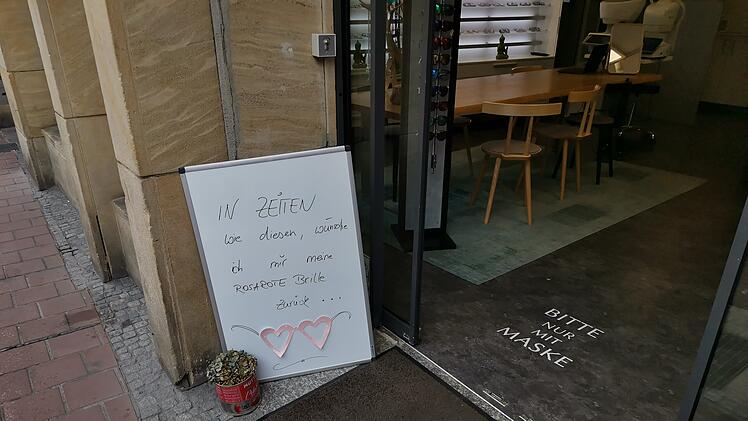 IN ZEITEN
wie diesen, wünsche
ich mir meine
ROSAROTE Brille
zurück ...
BITTE
NUR
MIT
MASKE